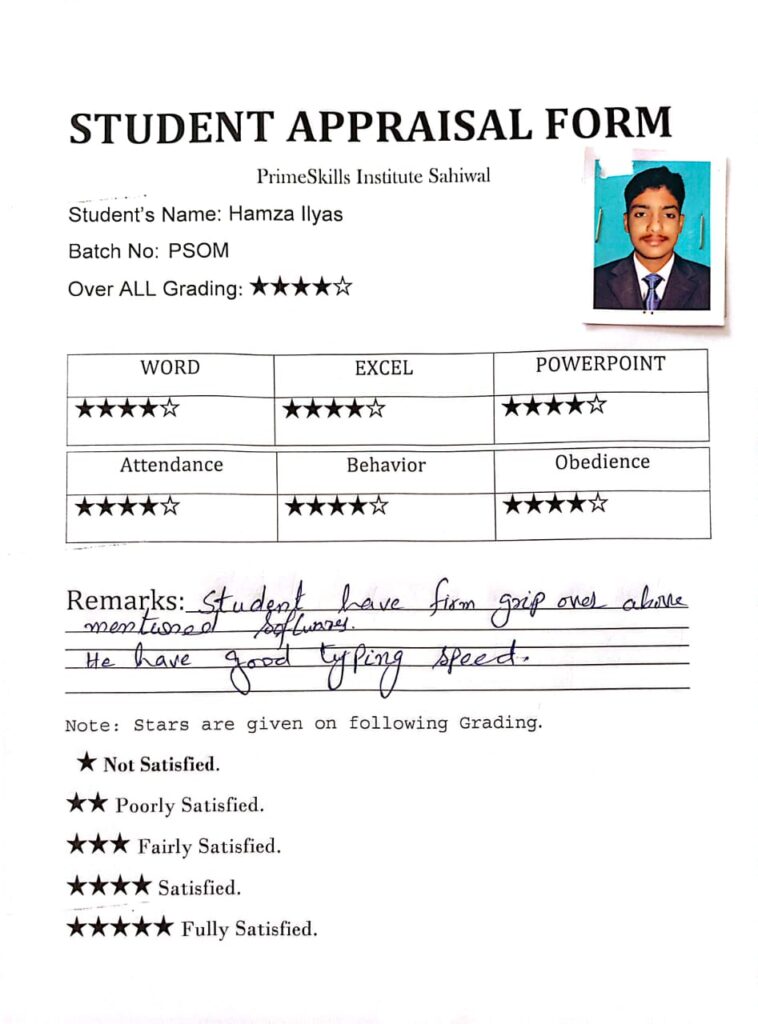 STUDENT APPRAISAL FORM
PrimeSkills Institute Sahiwal
Student's Name: Hamza Ilyas
Batch No: PSOM
Over ALL Grading: ★★★★☆
WORD EXCEL POWERPOINT
★★★★☆ ★★★★☆ ★★★★☆
Attendance Behavior Obedience
★★★★☆ ★★★★☆ ★★★★☆
Remarks: Student have firm grip over above
mentioned softwares.
He have good typing speed.
Note: Stars are given on following Grading.
★ Not Satisfied.
★★ Poorly Satisfied.
★★★ Fairly Satisfied.
★★★★ Satisfied.
★★★★★ Fully Satisfied.